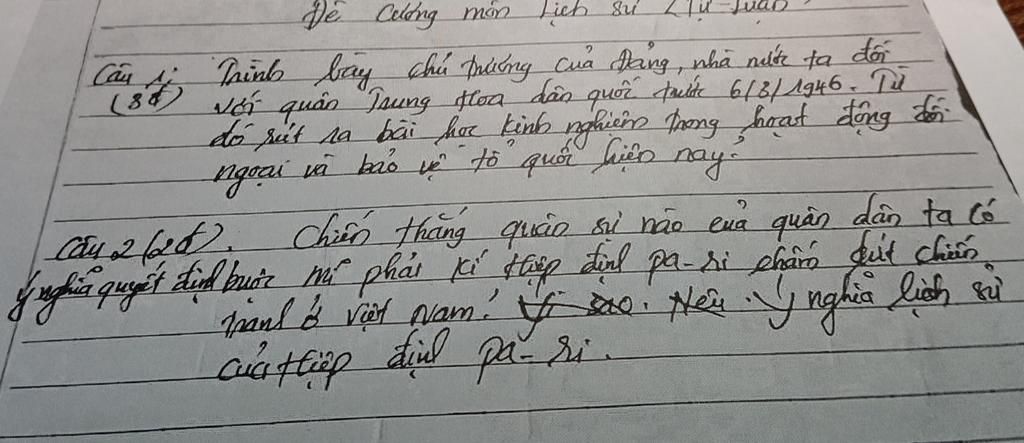 Đề Cương môn Lịch sử (Tự luận)
Câu 1: Trình bày chủ trương của Đảng, nhà nước ta đối
(3đ) với quân Trung Hoa dân quốc trước 6/3/1946. Từ
đó rút ra bài học kinh nghiệm trong hoạt động đối
ngoại và bảo vệ tổ quốc hiện nay?
Câu 2 (2đ). Chiến thắng quân sự nào của quân dân ta có
ý nghĩa quyết định buộc mĩ phải kí Hiệp định pa-ri chấm dứt chiến
tranh ở việt Nam? Vì sao. Nêu ý nghĩa lịch sử
của Hiệp định pa-ri.